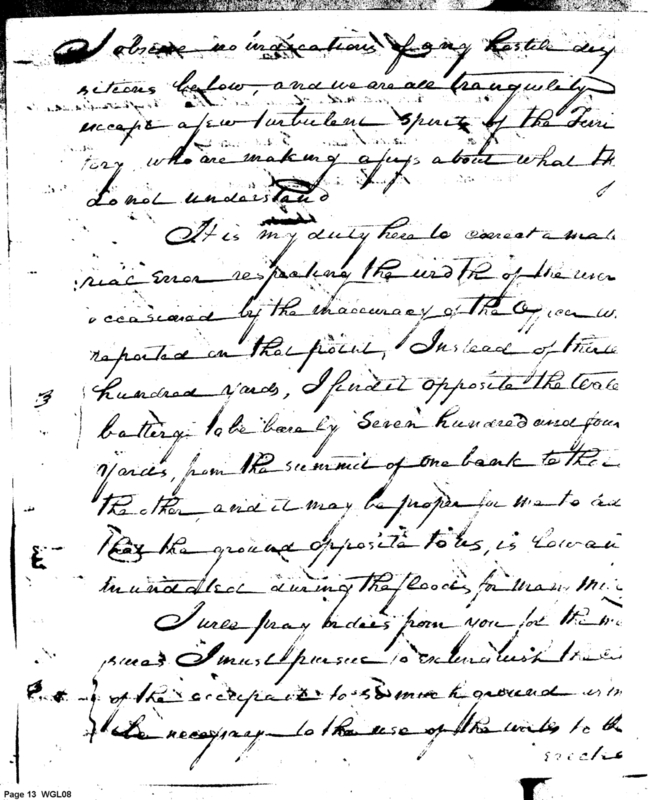 I observe no indications of any hostile dis
sitions below, and we are all tranquility
except a few turbulent spirits of the Terri
tory who are making a fuss about what th
do not understand
It is my duty here to correct a mate
rial Error respecting the width of the river
occasioned by the inaccuracy of the Officer w
reported on that point, Instead of
hundred yards, I find it opposite the
battery to be barely Seven hundred and four
yards, from the summit of one bank to that
the other, and it may be proper for me to ad
that the ground opposite to us, is low an
inundated during the floods for many mi
I pray orders from you for the m
sures I must pursue to extinguish the
of the occupant to so much ground as m
be necessary to the use of the works to th
erected
3
Page 13 WGL08